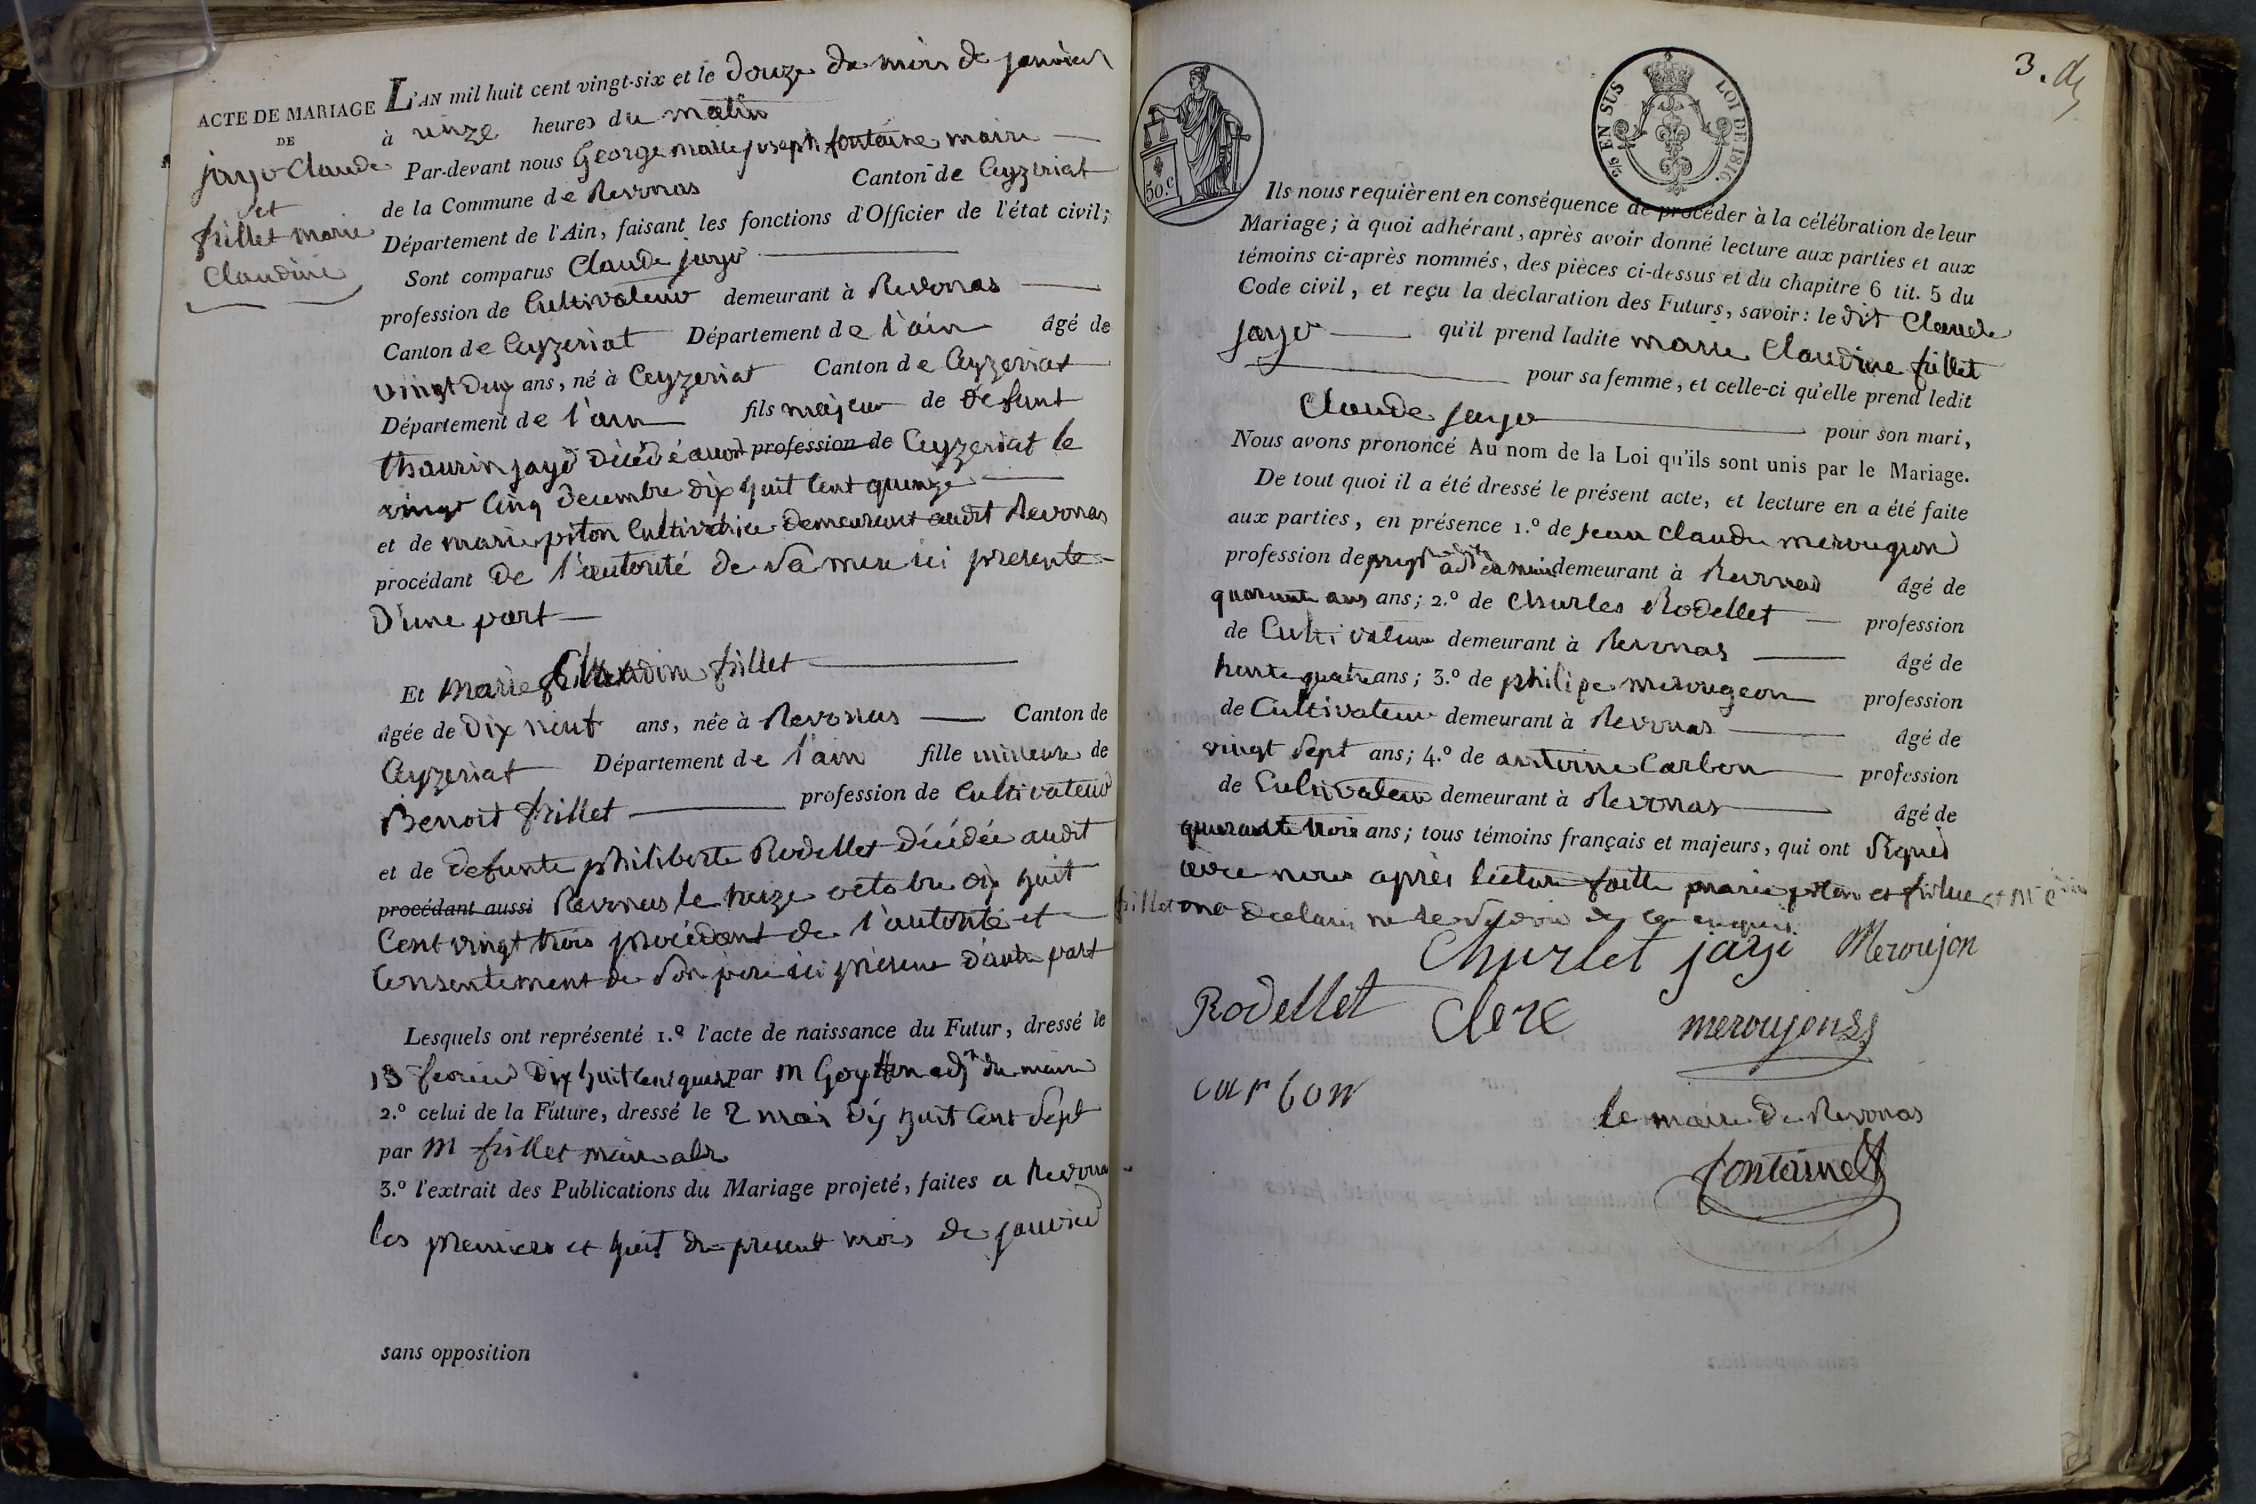 ACTE DE MARIAGE
DE
jayr Claude
et
frillet marie
Claudine
L'AN mil huit cent vingt-six et le douze du mois de janvier
à onze heures du matin
Par-devant nous George marie joseph fontaine maire
de la Commune de Revonas Canton de Ceyzeriat
Département de l'Ain, faisant les fonctions d'Officier de l'état civil;
Sont comparus Claude jayr
profession de Cultivateur demeurant à Revonas
Canton de Ceyzeriat Département de l'ain âgé de
vingt deux ans, né à Ceyzeriat Canton de Ceyzeriat
Département de l'ain fils majeur de defunt
thaurin jayr décédé audit profession de Ceyzeriat le
vingt cinq decembre dix huit cent quinze
et de marie piton Cultivatrice demeurant audit Revonas
procédant de l'autorité de sa mere ici presente
D'une part
Et marie Claudine frillet
âgée de dix neuf ans, née à Revonas Canton de
Ceyzeriat Département de l'ain fille mineure de
Benoit frillet profession de Cultivateur
et de defunte philiberte Rodellet décédée audit
procédant aussi Revonas le treize octobre dix huit
Cent vingt trois procédant de l'autorité et
Consentement de son pere ici présent d'autre part
Lesquels ont représenté 1.º l'acte de naissance du Futur, dressé le
13 fevrier dix huit cent quatre par M adj.t du maire
2.º celui de la Future, dressé le 2 mai dix huit cent sept
par M frillet maire alr
3.º l'extrait des Publications du Mariage projeté, faites a Revonas
les premiers et huit du present mois de janvier
sans opposition
50.c
5/2 EN SUS LOI DE 1816.
3.
Ils nous requièrent en conséquence de procéder à la célébration de leur
Mariage; à quoi adhérant, après avoir donné lecture aux parties et aux
témoins ci-après nommés, des pièces ci-dessus et du chapitre 6 tit. 5 du
Code civil, et reçu la déclaration des Futurs, savoir: le dit Claude
jayr qu'il prend ladite marie Claudine frillet
pour sa femme, et celle-ci qu'elle prend ledit
Claude jayr pour son mari,
Nous avons prononcé Au nom de la Loi qu'ils sont unis par le Mariage.
De tout quoi il a été dressé le présent acte, et lecture en a été faite
aux parties, en présence 1.º de jean Claude merougeon
profession de demeurant à Revonas âgé de
quarante ans ans; 2.º de Charles Rodellet profession
de Cultivateur demeurant à Revonas âgé de
trente quatre ans; 3.º de philipe merougeon profession
de Cultivateur demeurant à Revonas âgé de
vingt sept ans; 4.º de antoine Carbon profession
de Cultivateur demeurant à Revonas âgé de
quarante trois ans; tous témoins français et majeurs, qui ont signés
avec nous après lecture faitte marie piton et
frillet ont declaré ne le savoir de ce enquis
Churlet jayr Meroujon
Rodellet Clerc meroujon
carbon
le maire de Revonas
fontaine